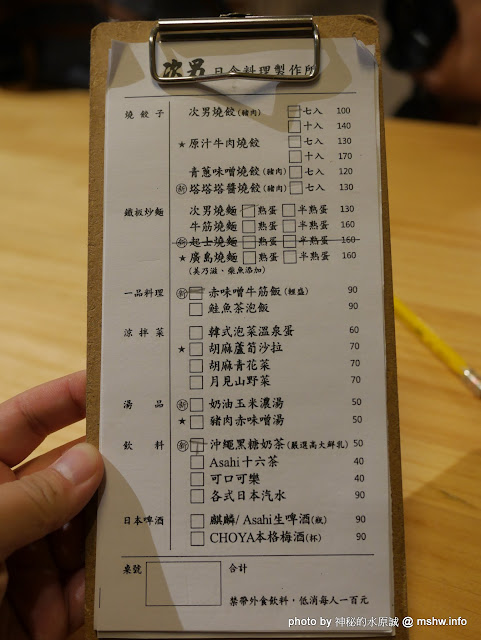 次男 日食料理製作所
燒餃子 次男燒餃(豬肉) 七入 100
十入 140
★原汁牛肉燒餃 七入 130
十入 170
青蔥味噌燒餃(豬肉) 七入 120
新 塔塔塔醬燒餃(豬肉) 七入 130
鐵板炒麵 次男燒麵 熟蛋 半熟蛋 130
牛筋燒麵 熟蛋 半熟蛋 160
新 起士燒麵 熟蛋 半熟蛋 160
★廣島燒麵 熟蛋 半熟蛋 160
(美乃滋、柴魚添加)
一品料理 新 赤味噌牛筋飯(輕盛) 90
鮭魚茶泡飯 90
涼拌菜 韓式泡菜溫泉蛋 60
★ 胡麻蘆筍沙拉 70
胡麻青花菜 70
月見山野菜 70
湯品 新 奶油玉米濃湯 50
★ 豬肉赤味噌湯 50
飲料 新 沖繩黑糖奶茶(嚴選高大鮮乳) 50
Asahi十六茶 40
可口可樂 40
各式日本汽水 90
日本啤酒 麒麟/Asahi生啤酒(瓶) 90
CHOYA本格梅酒(杯) 90
桌號 合計
禁帶外食飲料，低消每人一百元
photo by 神秘的水原誠 @ mshw.info